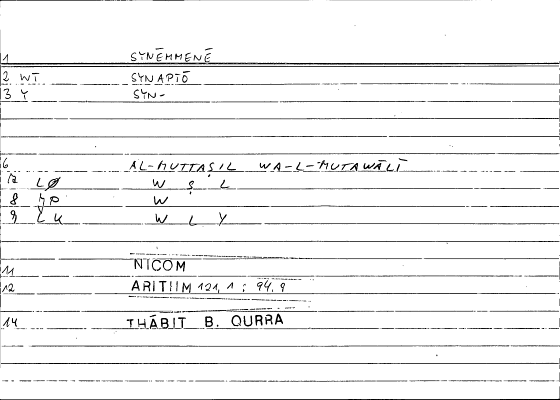 1 SYNĒMMENĒ
2 WT SYNAPTŌ
3 Y SYN-
6 AL-MUTTAṢIL WA-L-MUTAWĀLĪ
LØ W Ṣ L
8 W
9 W L Y
11 NICOM
12 ARITIIM 121,1 : 94,9
14 THĀBIT B. QURRA